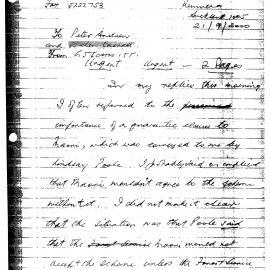 Fax 5222753
Remuera
Auckland 1005
21/9/2000
To Peter Andrew
and
From
Urgent Urgent — 2 Pages
In my replies this morning
I often referred to the
importance of a guarantee clause to
Maori, which was conveyed to me by
Lindsay Poole. I probably said or implied
that Maori wouldn't agree to the scheme
without it. I did not make it clear
that the situation was that Poole said
that the Maori would not
accept the scheme unless the